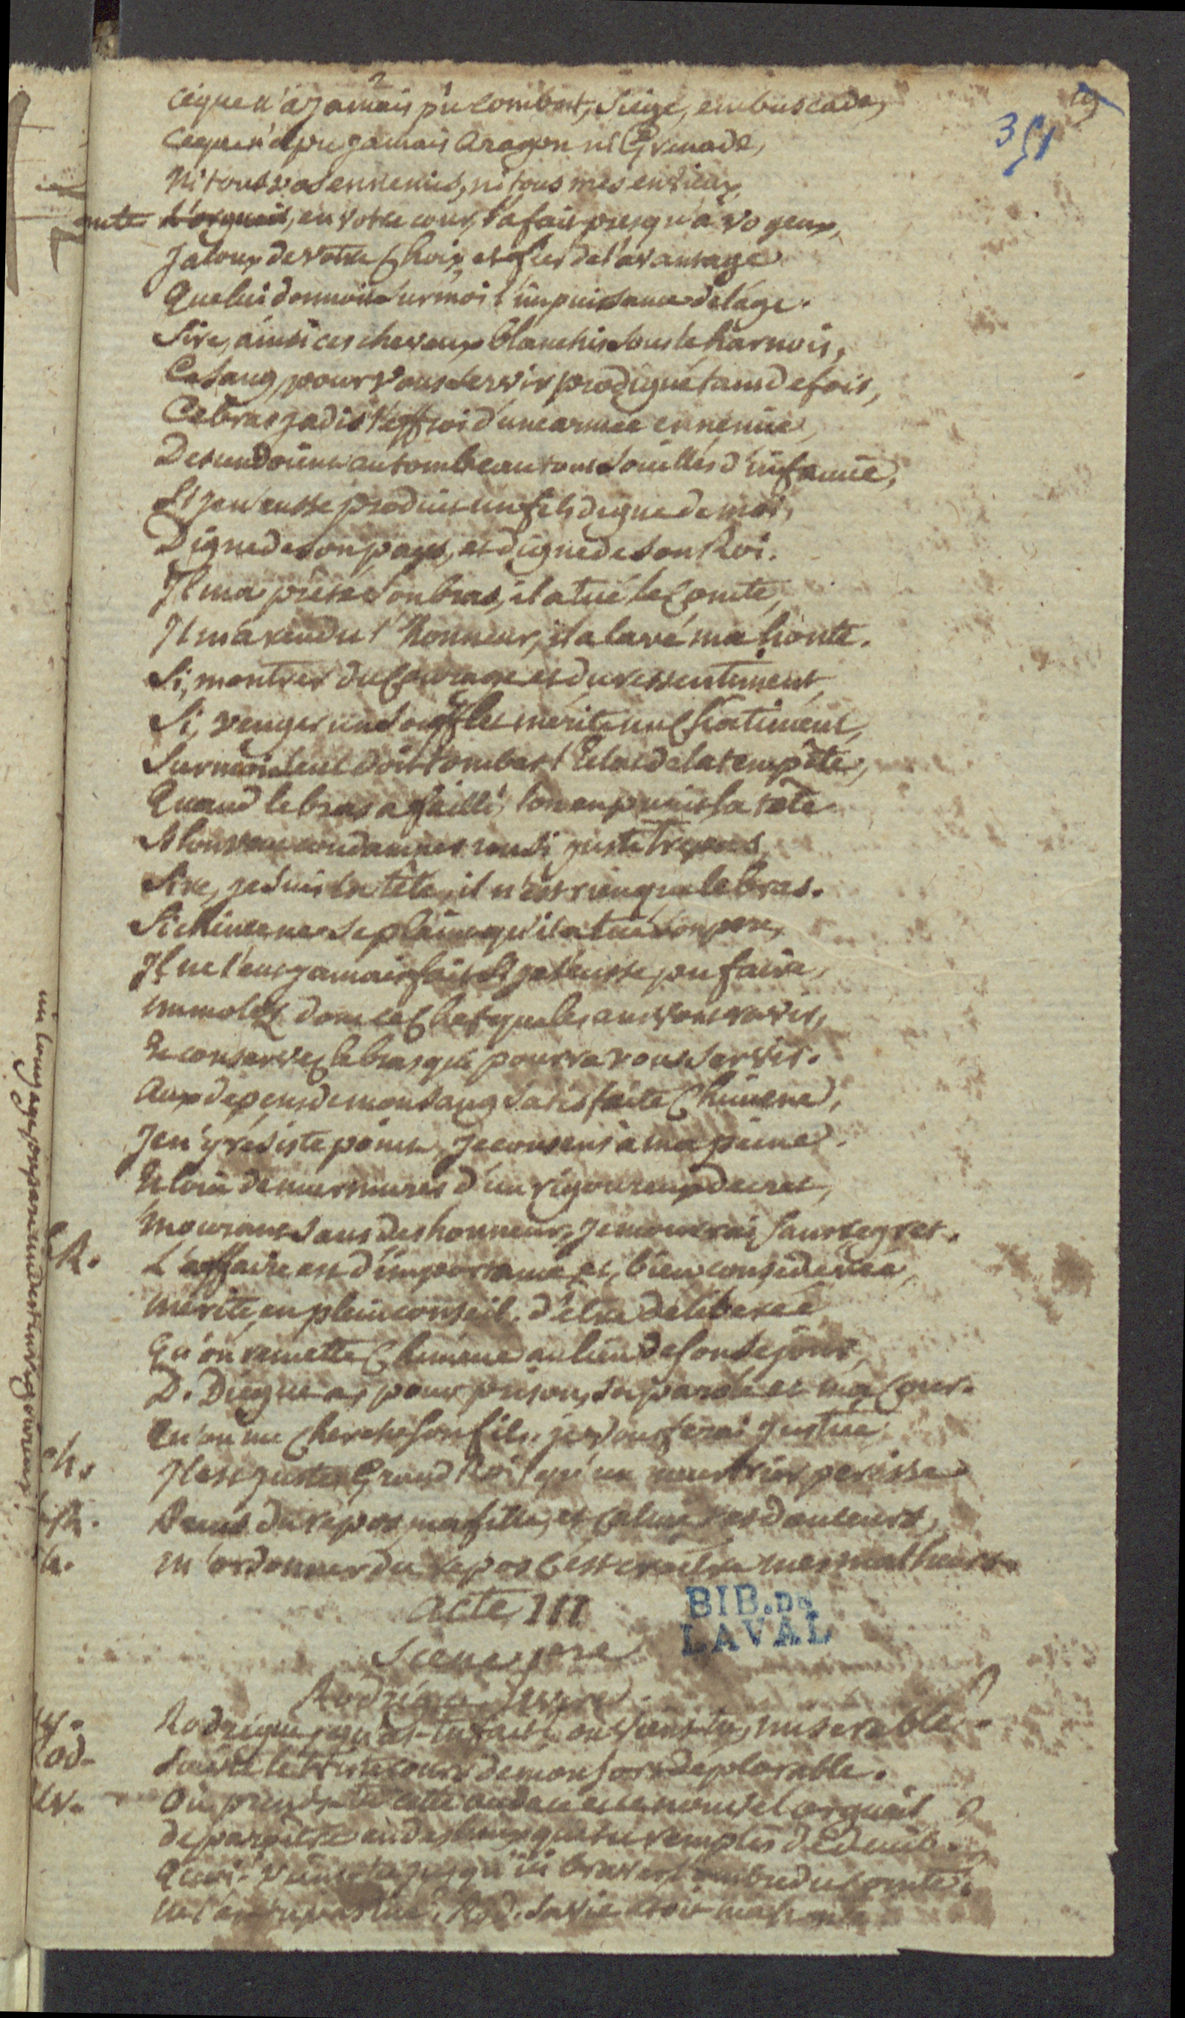 19
351
Ce que n'a jamais pu combat, siège, embuscade,
Ce que n'a pu jamais Aragon ni Grenade,
Ni tous vos ennemis, ni tous mes envieux,
L'orgueil, en votre cour, l'a fait presqu'à vos yeux,
Jaloux de votre choix et fier de l'avantage
Que lui donnoit sur moi l'impuissance de l'âge.
Sire, ainsi ces cheveux blanchis sous le harnois,
Ce sang pour vous servir prodigué tant de fois,
Ce bras jadis l'effroi d'une armée ennemie,
Descendoient au tombeau tous souillés d'infamie,
Si je n'eusse produit un fils digne de moi,
Digne de son pays, et digne de son Roi.
Il m'a prêté son bras, il a tué le Comte,
Il m'a rendu l'honneur, il a lavé ma honte.
Si, montrer du courage et du ressentiment,
Si, venger un soufflet mérite un chatiment,
Sur moi seul doit tomber l'éclat de la tempête,
Quand le bras a failli, l'on en punit la tête
Sire, je suis la tête, il n'est rien que le bras.
Si chimene se plaint qu'il a tué son pere,
Il ne l'eut jamais fait si je l'eusse pu faire,
Immolez donc ce Chef que les ans vont ravir,
Et conservez le bras qui pourra vous servir.
Aux dépens de mon sang satisfaite Chimene,
Je n'y résiste point, je consens à ma peine.
Et loin de murmurer d'un rigoureux decret,
Mourant sans deshonneur, je mourrai sans regret.
R. L'affaire est d'importance, et, bien considérée,
Mérite en plein conseil d'être déliberée
Qu'on remette Chimene au lieu de son séjour,
D. Diegue a, pour prison, sa parole et ma Cour.
Qu'on me cherche son fils. je vous ferai justice
Il est juste, Grand Roi, qu'un meurtrier perisse
Prens du repos, ma fille, et calme tes douleurs,
M'ordonner du repos c'est croître mes malheurs.
Acte III
Scene 1ere
BIB. De
LAVAL
Rodrigue, qu'as-tu fait, où viens-tu, miserable ?
Suivre le triste cours de mon sort déplorable.
Où prends-tu cette audace et ce nouvel orgueil
De paroitre en des lieux que tu remplis de deuil ?
Quoi! viens-tu jusqu'ici braver l'ombre du Comte ?
Ne l'as-tu pas tué ? Rod. Sa vie étoit ma honte